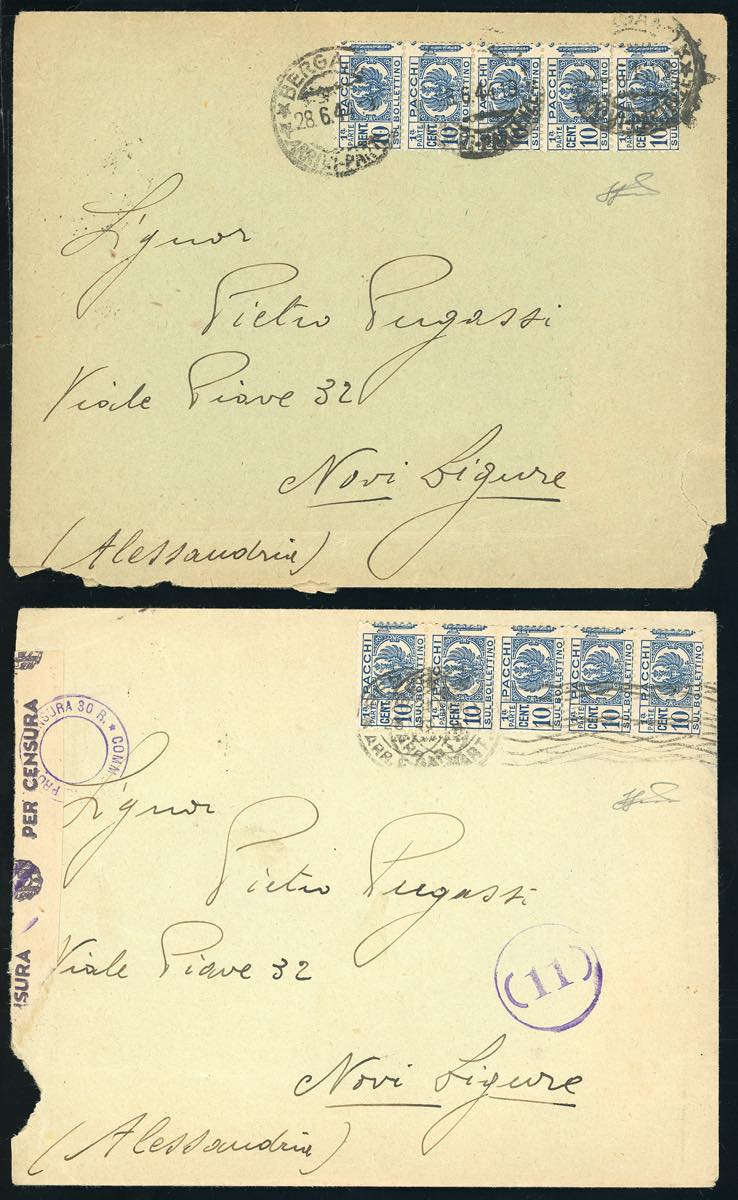 BERGA
28.6.4
ARRIVI-PAR
1ª PARTE PACCHI SUL BOLLETTINO CENT. 10
1ª PARTE PACCHI SUL BOLLETTINO CENT. 10
1ª PARTE PACCHI SUL BOLLETTINO CENT. 10
1ª PARTE PACCHI SUL BOLLETTINO CENT. 10
1ª PARTE PACCHI SUL BOLLETTINO CENT. 10
Signor
Pietro Pugassi
Viale Piave 32
Novi Ligure
(Alessandria)
1ª PARTE PACCHI SUL BOLLETTINO CENT. 10
1ª PARTE PACCHI SUL BOLLETTINO CENT. 10
1ª PARTE PACCHI SUL BOLLETTINO CENT. 10
1ª PARTE PACCHI SUL BOLLETTINO CENT. 10
1ª PARTE PACCHI SUL BOLLETTINO CENT. 10
PER CENSURA
SURA
SURA 30 R. * COMM
Signor
Pietro Pugassi
Viale Piave 32
(11)
Novi Ligure
(Alessandria)